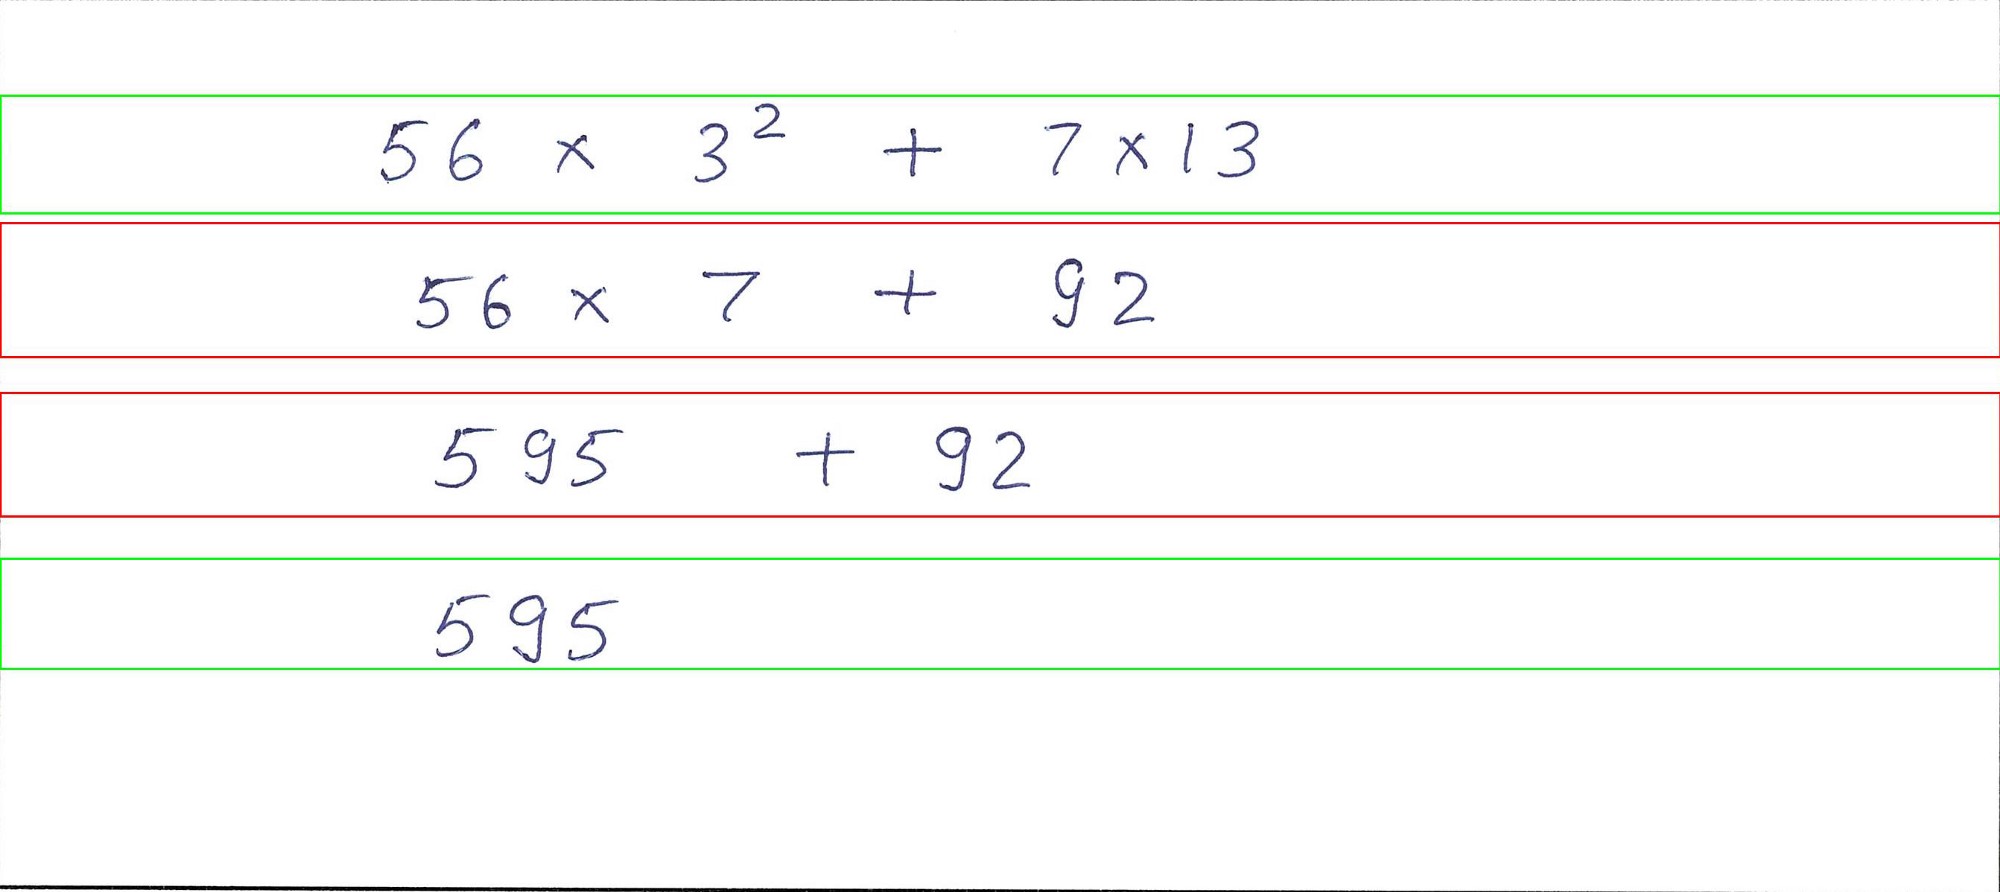 56 × 3² + 7 × 13
56 × 7 + 92
595 + 92
595